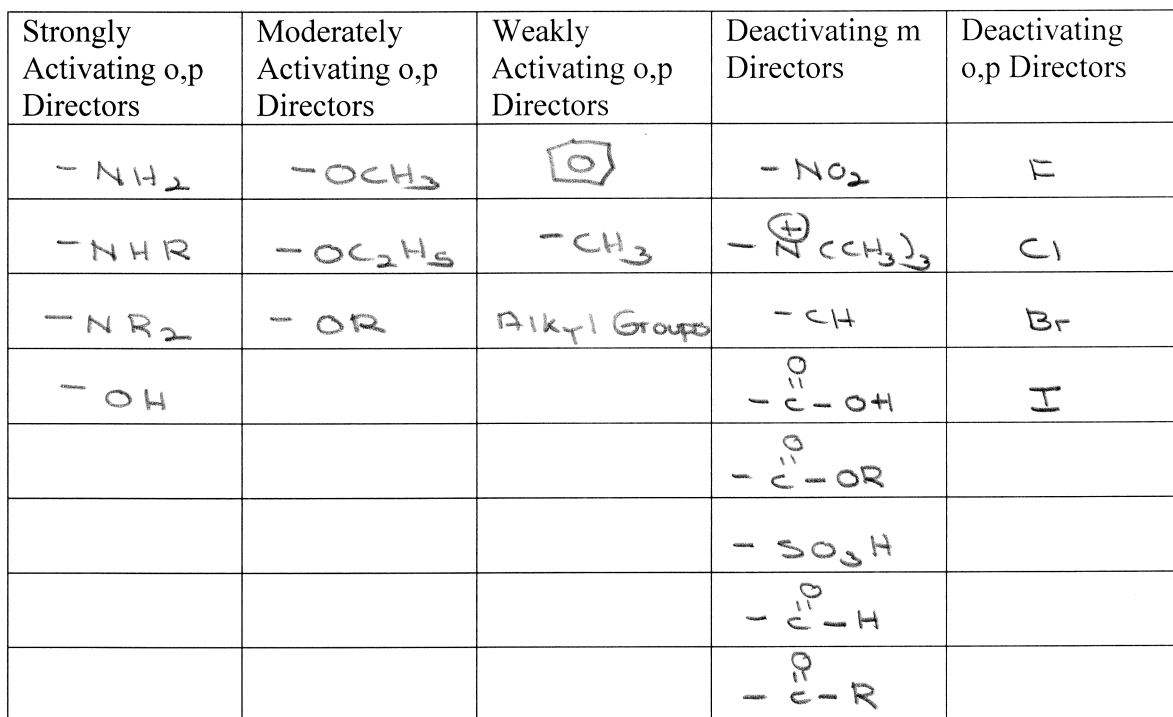 Strongly Activating o,p Directors
Moderately Activating o,p Directors
Weakly Activating o,p Directors
Deactivating m Directors
Deactivating o,p Directors
- NH2
- OCH3
- NO2
F
- NHR
- OC2H5
- CH3
- N⊕(CH3)3
Cl
- NR2
- OR
Alkyl Groups
- CH
Br
- OH
O
- C - OH
I
O
- C - OR
- SO3H
O
- C - H
O
- C - R